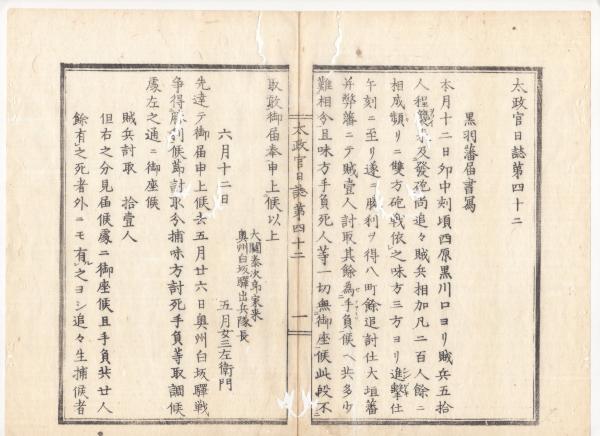 太政官日誌第四十二
黒羽藩届書寫
本月十二日卯中刻頃西原黒川口ヨリ賊兵五拾
人程襲来及發砲尚追々賊兵相加凡二百人餘ニ
相成頻リニ雙方砲戦依之味方三方ヨリ進撃仕
午刻ニ至リ遂ニ勝利ヲ得八町餘追討仕大垣藩
并弊藩ニテ賊壹人討取其餘為手負候ヘ共多少
難相分且味方手負死人等一切無御座候此段不
太政官日誌第四十二
一
取敢御届奉申上候以上
大關泰次郎家来
奥州白坂驛出兵隊長
六月十二日
五月女三左衛門
先達テ御届申上候去五月廿六日奥州白坂驛戦
争得勝利候節討取分捕味方討死手負等取調候
處左之通ニ御座候
賊兵討取 拾壹人
但右之分見届候處ニ御座候且手負共廿人
餘有之死者外ニモ有之ヨシ追々生捕候者